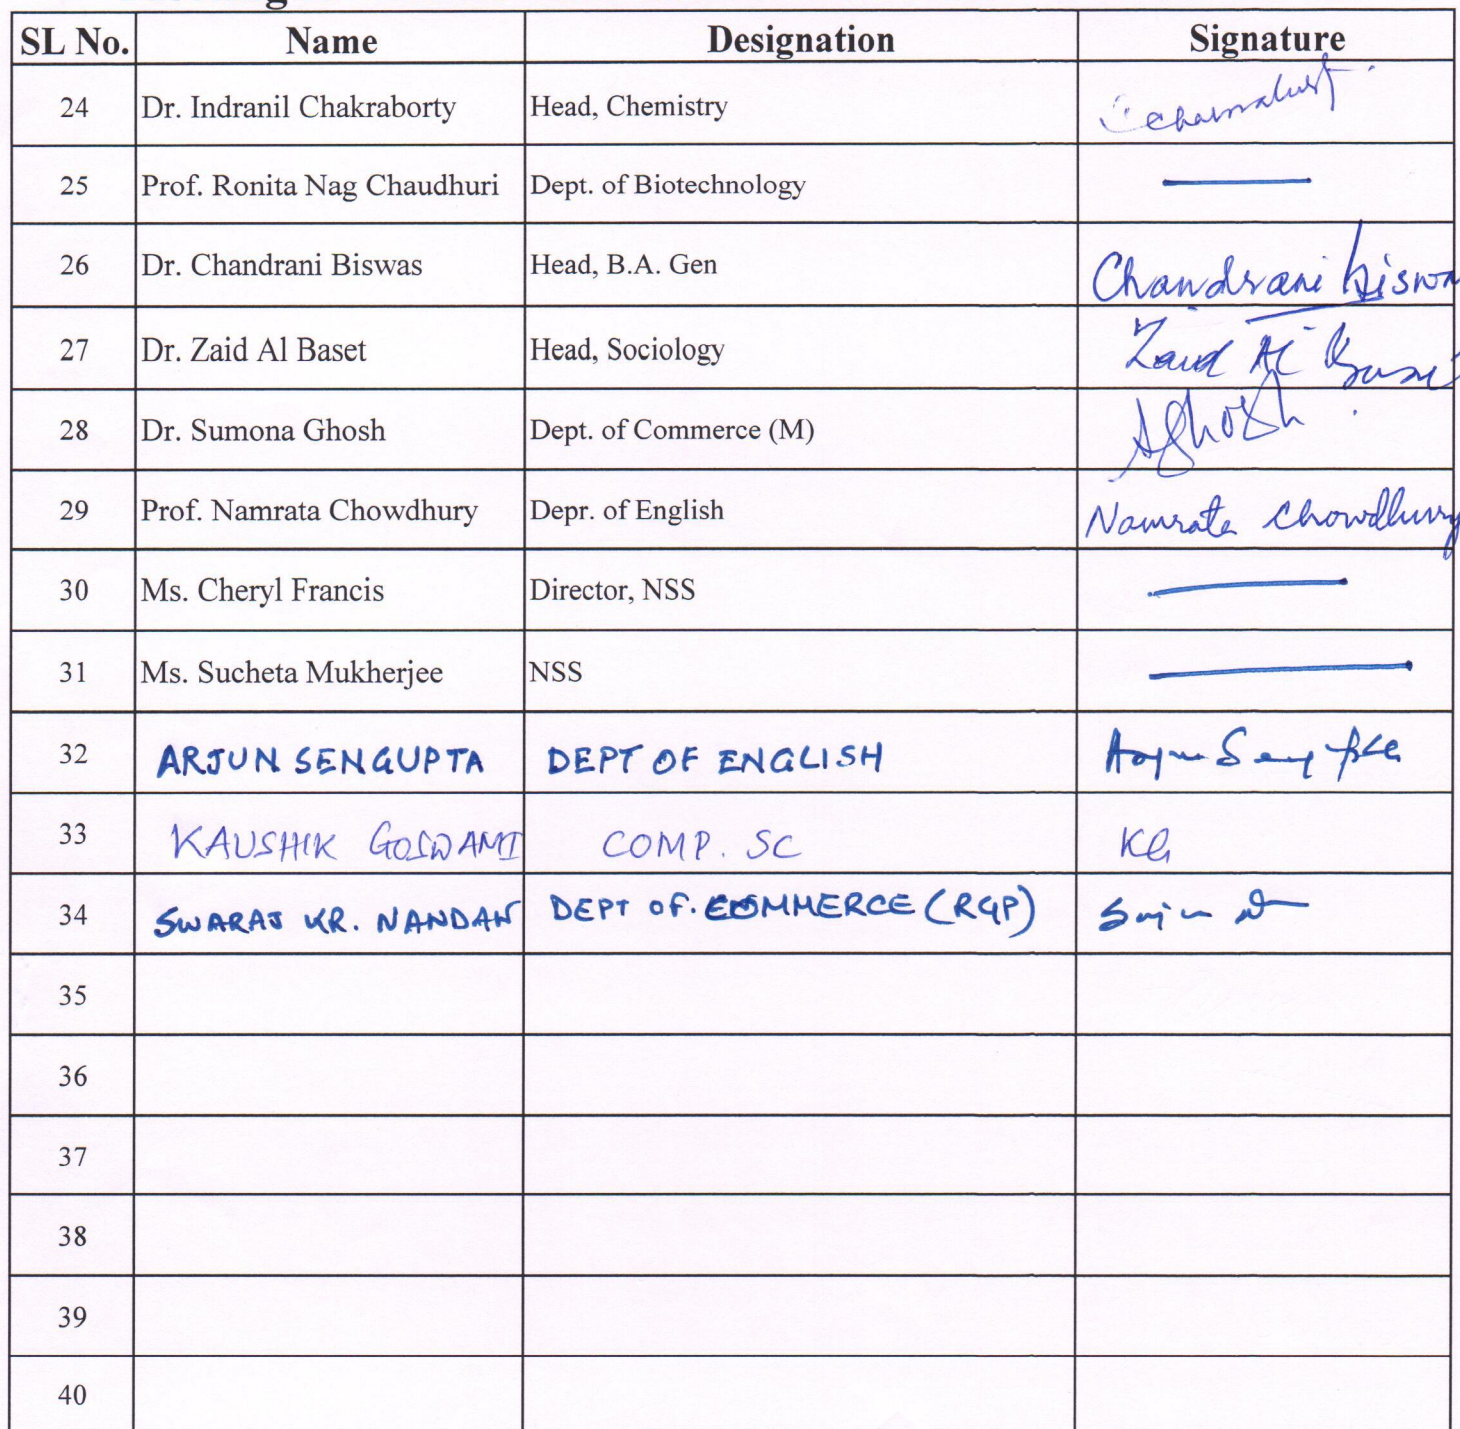 SL No. Name Designation Signature
24 Dr. Indranil Chakraborty Head, Chemistry
25 Prof. Ronita Nag Chaudhuri Dept. of Biotechnology
26 Dr. Chandrani Biswas Head, B.A. Gen Chandrani Biswa
27 Dr. Zaid Al Baset Head, Sociology Zaid Al Base
28 Dr. Sumona Ghosh Dept. of Commerce (M) SGhosh
29 Prof. Namrata Chowdhury Depr. of English Namrata Chowdhury
30 Ms. Cheryl Francis Director, NSS
31 Ms. Sucheta Mukherjee NSS
32 ARJUN SENGUPTA DEPT OF ENGLISH Arjun Sengupta
33 KAUSHIK GOSWAMI COMP. SC KG
34 SWARAJ KR. NANDAN DEPT OF. COMMERCE (RGP)
35
36
37
38
39
40